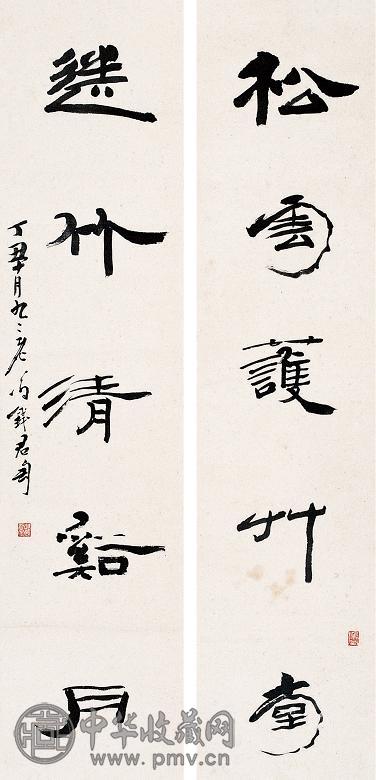 松雲護艸堂
竹清谿月
丁丑十月九二老 錢君匋
中华收藏网
www.pmv.cn